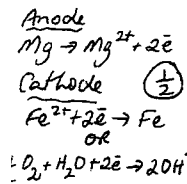 Anode
Mg → Mg²⁺ + 2ē
Cathode
½
Fe²⁺ + 2ē → Fe
OR
O₂ + H₂O + 2ē → 2OH